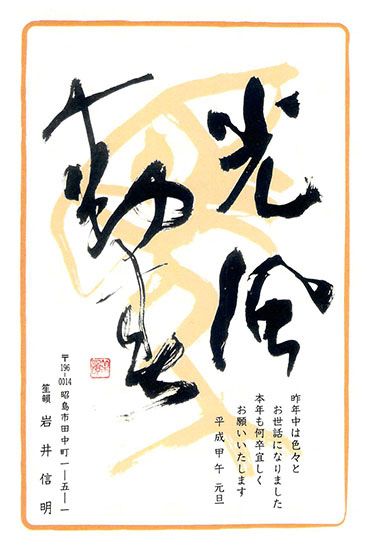 光風
動春
昨年中は色々と
お世話になりました
本年も何卒宜しく
お願いいたします
平成甲午 元旦
〒196-0014 昭島市田中町一―五―一
笙韻 岩井信明